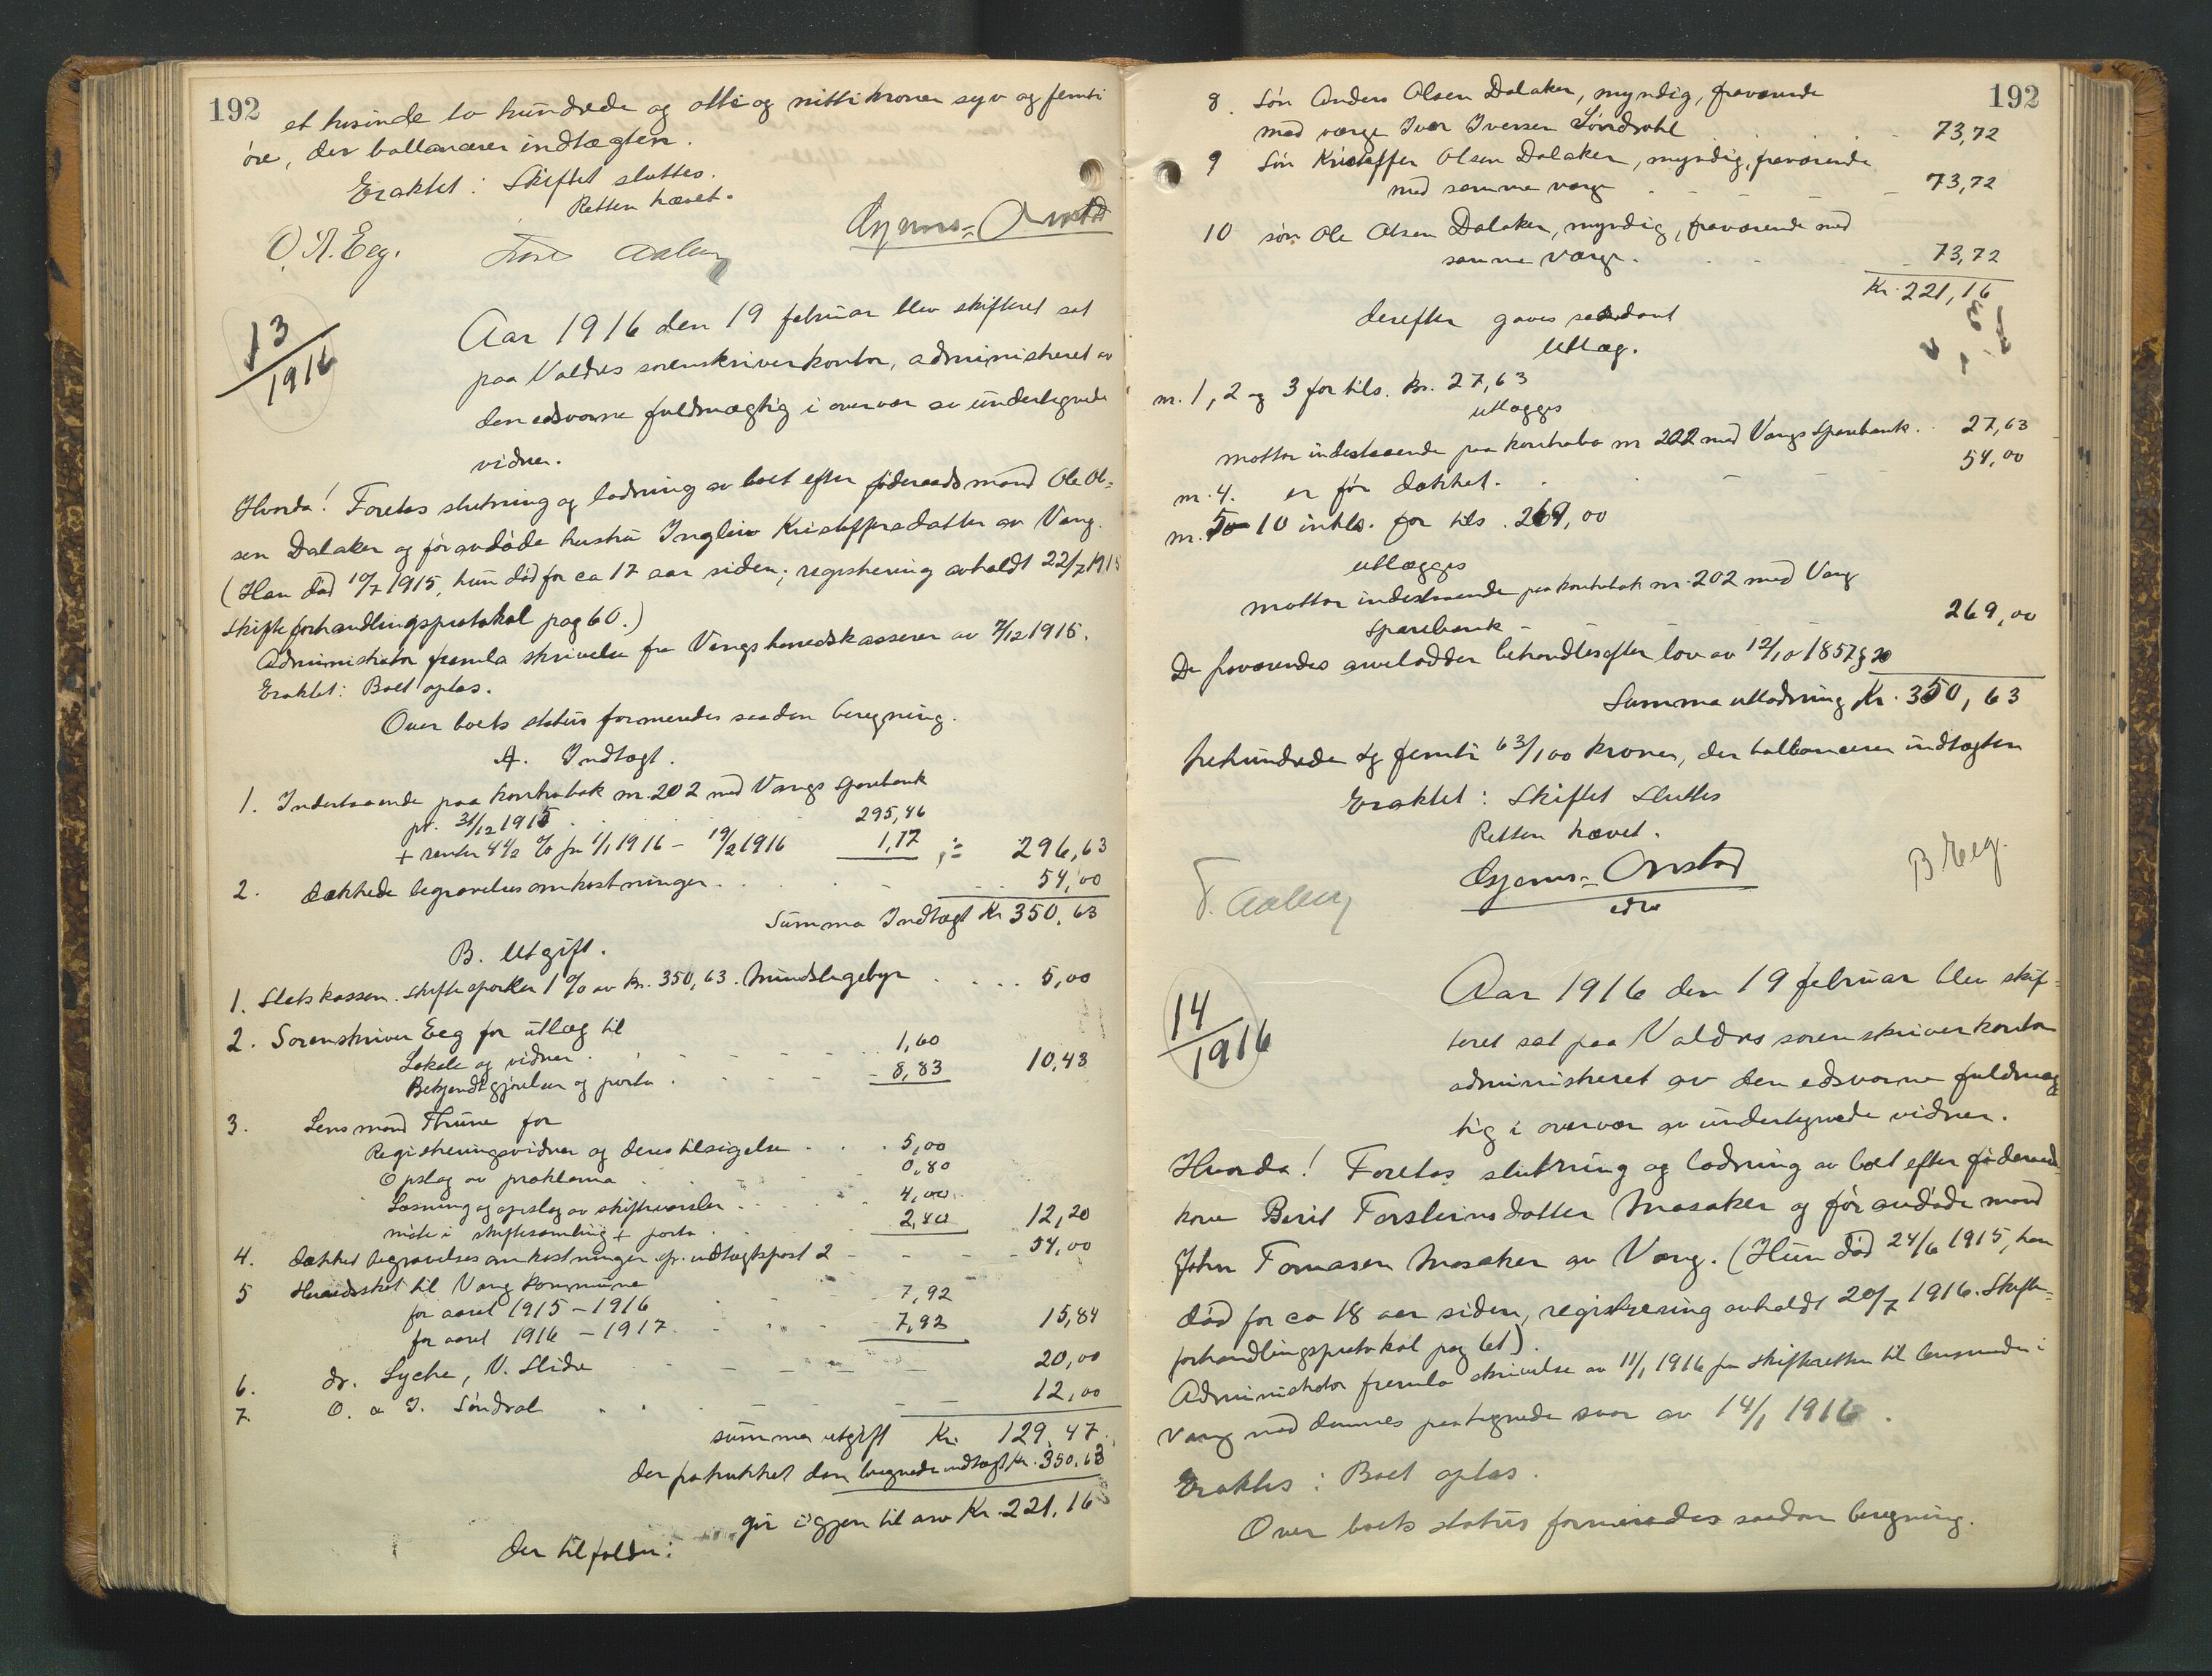 192
et tusinde to hundrede og otte og nitti kroner syv og femti
øre, der ballancerer indtægten.
Eraktet: Skiftet sluttes.
Retten hævet.
O. A. Eeg.
Aaberg
13/1916
Aar 1916 den 19 februar blev skifteret sat
paa Valdres sorenskriverkontor, administreret av
den edsvorne fuldmægtig i overvær av undertegnede
vidner.
Hvorda! Foretas slutning og lodning av boet efter føderaadsmand Ole Ol=
sen Dalaker og før avdøde hustru Ingleiv Kristoffersdatter av Vang.
(Han død 10/7 1915, hun død for ca 17 aar siden; registrering avholdt 22/7 1915
skifteforhandlingsprotokol pag 60.)
Administrator fremla skrivelse fra Vangs herredskasserer av 7/12 1915.
Eraktet: Boet optas.
Over boets status formeredes saadan beregning.
A. Indtægt.
1. Indestaaende paa kontrabok nr. 202 med Vangs sparebank
pr. 31/12 1915 . . . 295,46
+ renter 4 1/2 % fra 1/1 1916 - 19/2 1916 1,17 ,÷ 296,63
2. dækkede begravelsesomkostninger . . . 54,00
Summa Indtægt Kr 350,63
B. Utgift.
1. Statskassen. Skiftesportler 1 % av kr. 350,63. Mindstegebyr . . . 5,00
2. Sorenskriver Eeg for utlæg til
Lokale og vidner . . . 1,60
Bekjendtgjørelser og porto . . . 8,83 10,43
3. Lensmand Thune for
Registreringsvidner og deres tilsigelse . . . 5,00
Opslag av proklama 0,80
Læsning og opslag av skiftevarsler . . . 4,00
møte i skiftesamling + porto 2,40 12,20
4. dækket begravelsesomkostninger jfr. indtægtspost 2 - - - 54,00
5 Herredsskat til Vang kommune
for aaret 1915 - 1916 7,92
for aaret 1916 - 1917 7,92 15,84
6. dr. Lyche, V. Slidre 20,00
7. O. a I. Søndrol 12,00
summa utgift Kr. 129,47
der fratrukket den beregnede indtægt Kr. 350,63
gir igjen til arv Kr. 221,16
der tilfalder:
192
8. Søn Anders Olsen Dalaker, myndig, fraværende
med verge Iver Iversen Søndrohl 73,72
9 Søn Kristoffer Olsen Dalaker, myndig, fraværende
med samme verge 73,72
10 søn Ole Olsen Dalaker, myndig, fraværende med
samme verge. 73,72
Kr. 221,16
derefter gaves saadant
Utlæg.
nr. 1, 2 og 3 for tils. kr. 27,63
utlægges
mottar indestaaende paa kontrabo nr 202 med Vangs Sparebank . 27,63
nr. 4. er før dækket. 54,00
nr. 5 - 10 inkls. for tils. 269,00
utlægges
mottar indestaaende paa kontrabok nr. 202 med Vang
sparebank - 269,00
De fraværendes arvelodder behandles efter lov av 12/10 1857 § 20
Summa utlodning Kr. 350,63
trehundrede og femti 63/100 kroner, der ballancerer indtægten
Eraktet: Skiftet sluttes
Retten hævet.
T. Aaberg
Onstad
edsv
B Eeg.
14/1916
Aar 1916 den 19 februar blev skif=
teret sat paa Valdres sorenskriverkontor
administreret av den edsvorne fuldmæg
tig i overvær av undertegnede vidner.
Hvorda! Foretas slutning og lodning av boet efter føderaads
kone Berit Torsteinsdatter Mosaker og før avdøde mand
John Tomasen Mosaker av Vang. (Hun død 24/6 1915, han
død for ca 18 aar siden, registrering avholdt 20/7 1916. Skifte=
forhandlingsprotokol pag 61).
Administrator fremla skrivelse av 11/1 1916 fra skifteretten til lensmanden i
Vang med dennes paategnede svar av 14/1 1916.
Eraktes: Boet optas.
Over boets status formeredes saadan beregning.